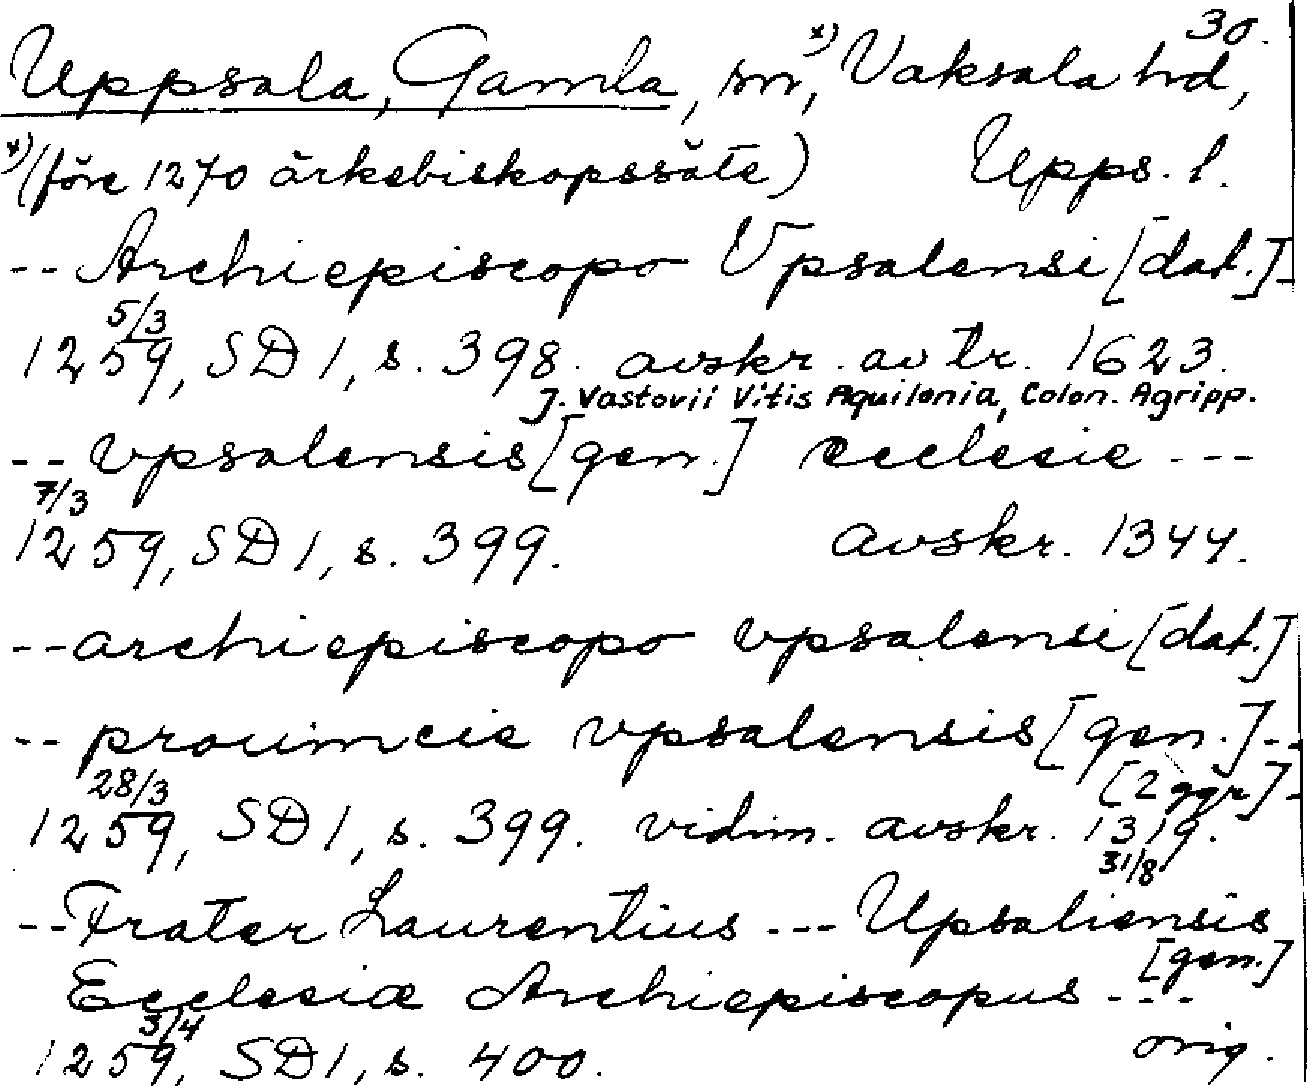 30.
Uppsala, Gamla, sn, x) Vaksala hd,
x) (före 1270 ärkebiskopssäte) Upps. l.
-- Archiepiscopo Vpsalensi [dat.] -
5/3
1259, SD 1, s. 398. avskr. av tr. 1623.
J. Vastovii Vitis Aquilonia, Colon. Agripp.
-- vpsalensis [gen.] ecclesie ---
7/3
1259, SD 1, s. 399. avskr. 1344.
-- archiepiscopo vpsalensi [dat.]
-- prouincie vpsalensis [gen.] --
28/3 [2 ggr] -
1259, SD 1, s. 399. vidim. avskr. 1319.
31/8
-- Frater Laurentius --- Upsaliensis
[gen.]
Ecclesiæ Archiepiscopus ---
3/4
1259, SD 1, s. 400. orig.